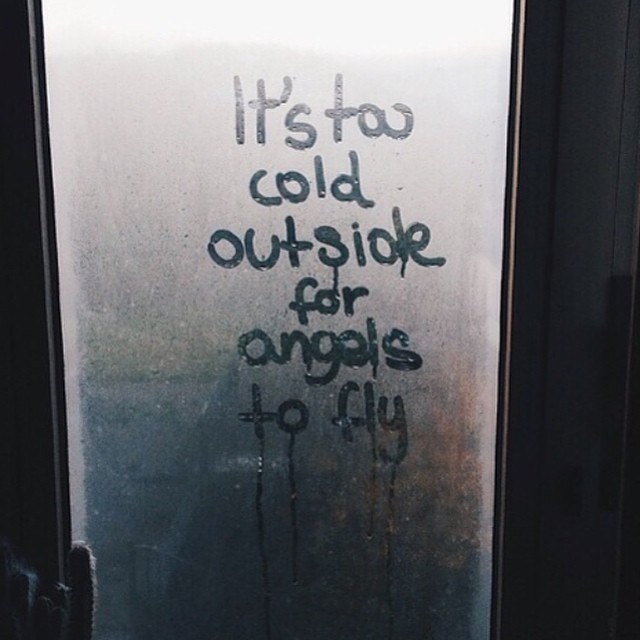 It's too
cold
outside
for
angels
to fly